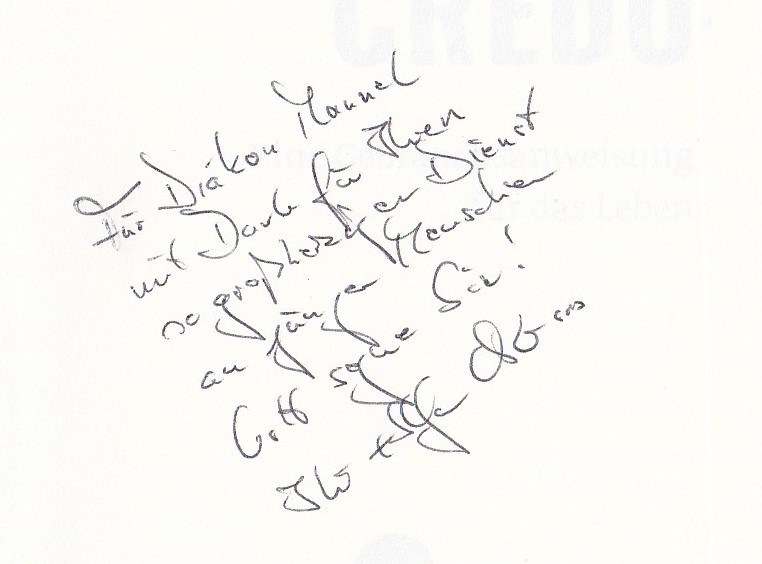 CREDO
Eine Gebrauchsanweisung
für das Leben
Für Diakon Manuel
mit Dank für Ihren
so großherzigen Dienst
an jungen Menschen
Gott segne Sie!
Ihr +